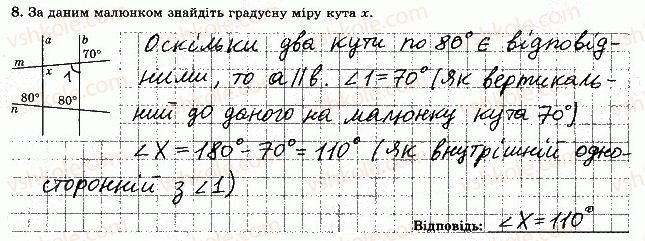 8. За даним малюнком знайдіть градусну міру кута x.
a b
70°
m
x 1
80° 80°
n
Оскільки два кути по 80° є відповід-
ними, то a||b. ∠1=70° (як вертикаль-
ний до даного на малюнку кута 70°)
∠X=180°-70°=110° (як внутрішній одно-
сторонній з ∠1)
Відповідь: ∠X=110°